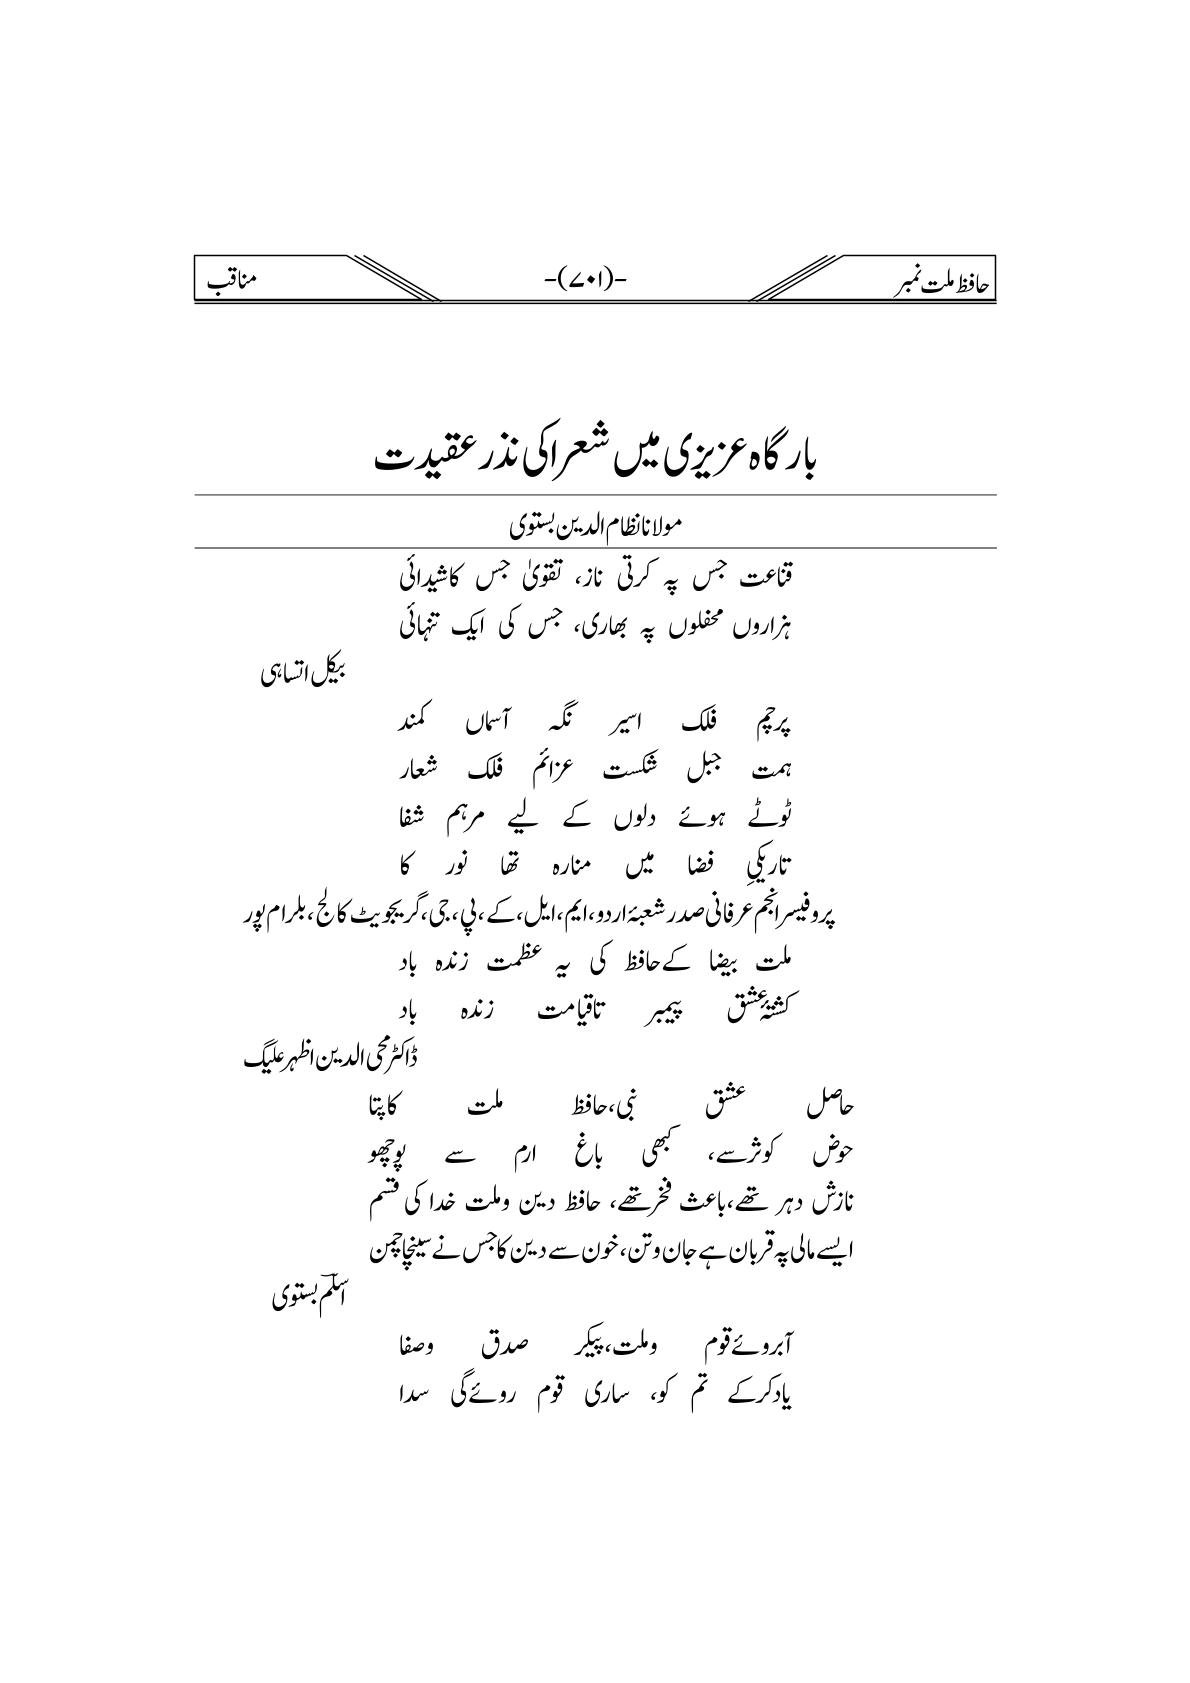 حافظ ملت نمبر -(۷۰۱)- مناقب
بارگاہ عزیزی میں شعرا کی نذر عقیدت
مولانا نظام الدین بستوی
قناعت جس پہ کرتی ناز، تقویٰ جس کا شیدائی
ہزاروں محفلوں پہ بھاری، جس کی ایک تنہائی
بیکل اتساہی
پرچم فلک اسیر نگہ آسماں کمند
ہمت جبل شکست عزائم فلک شعار
ٹوٹے ہوئے دلوں کے لیے مرہم شفا
تاریکیِ فضا میں منارہ تھا نور کا
پروفیسر انجم عرفانی صدر شعبۂ اردو، ایم، ایل، کے، پی، جی، گریجویٹ کالج، بلرام پور
ملت بیضا کے حافظ کی یہ عظمت زندہ باد
کشتۂ عشق پیمبر تاقیامت زندہ باد
ڈاکٹر محی الدین اظہر علیگ
حاصل عشق نبی، حافظ ملت کا پتا
حوض کوثر سے، کبھی باغ ارم سے پوچھو
نازش دہر تھے، باعث فخر تھے، حافظ دین و ملت خدا کی قسم
ایسے مالی پہ قربان ہے جان و تن، خون سے دین کا جس نے سینچا چمن
اسلمؔ بستوی
آبروئے قوم و ملت، پیکر صدق و صفا
یاد کر کے تم کو، ساری قوم روئے گی سدا